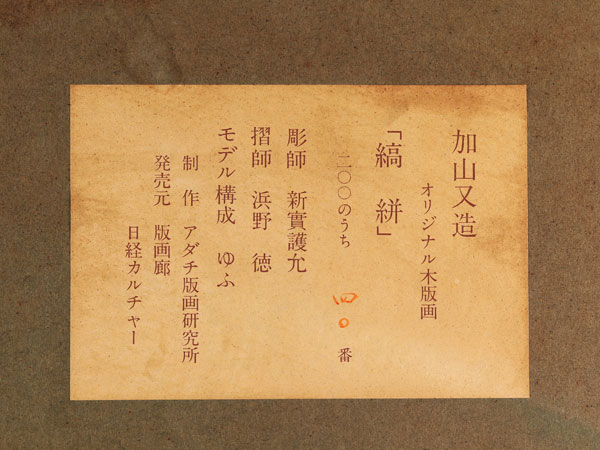 加山又造
オリジナル木版画
「縞 絣」
二〇〇のうち 四〇 番
彫師 新實護允
摺師 浜野 徳
モデル構成 ゆふ
制 作 アダチ版画研究所
発売元 版画廊
日経カルチャー